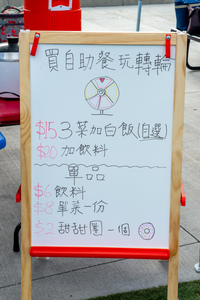 買自助餐玩轉輪
$15 3菜加白飯(自選)
$20 加飲料
單品
$6 飲料
$8 單菜一份
$2 甜甜圈一個